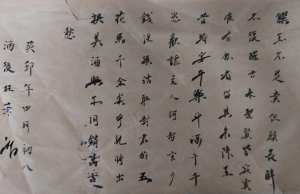 饌玉不足貴但願長醉
不復醒古來聖賢皆寂寞
惟有飲者留其名陳王
昔時宴平樂斗酒十千
恣歡謔主人何為言少
錢徑須沽取對君酌五
花馬千金裘呼兒將出
換美酒與爾同銷萬古
愁
癸卯年四月初八
酒後狂草